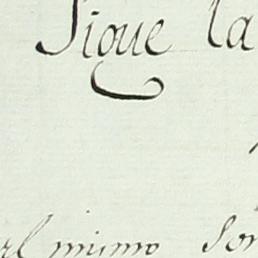 Sigue la
el mismo son